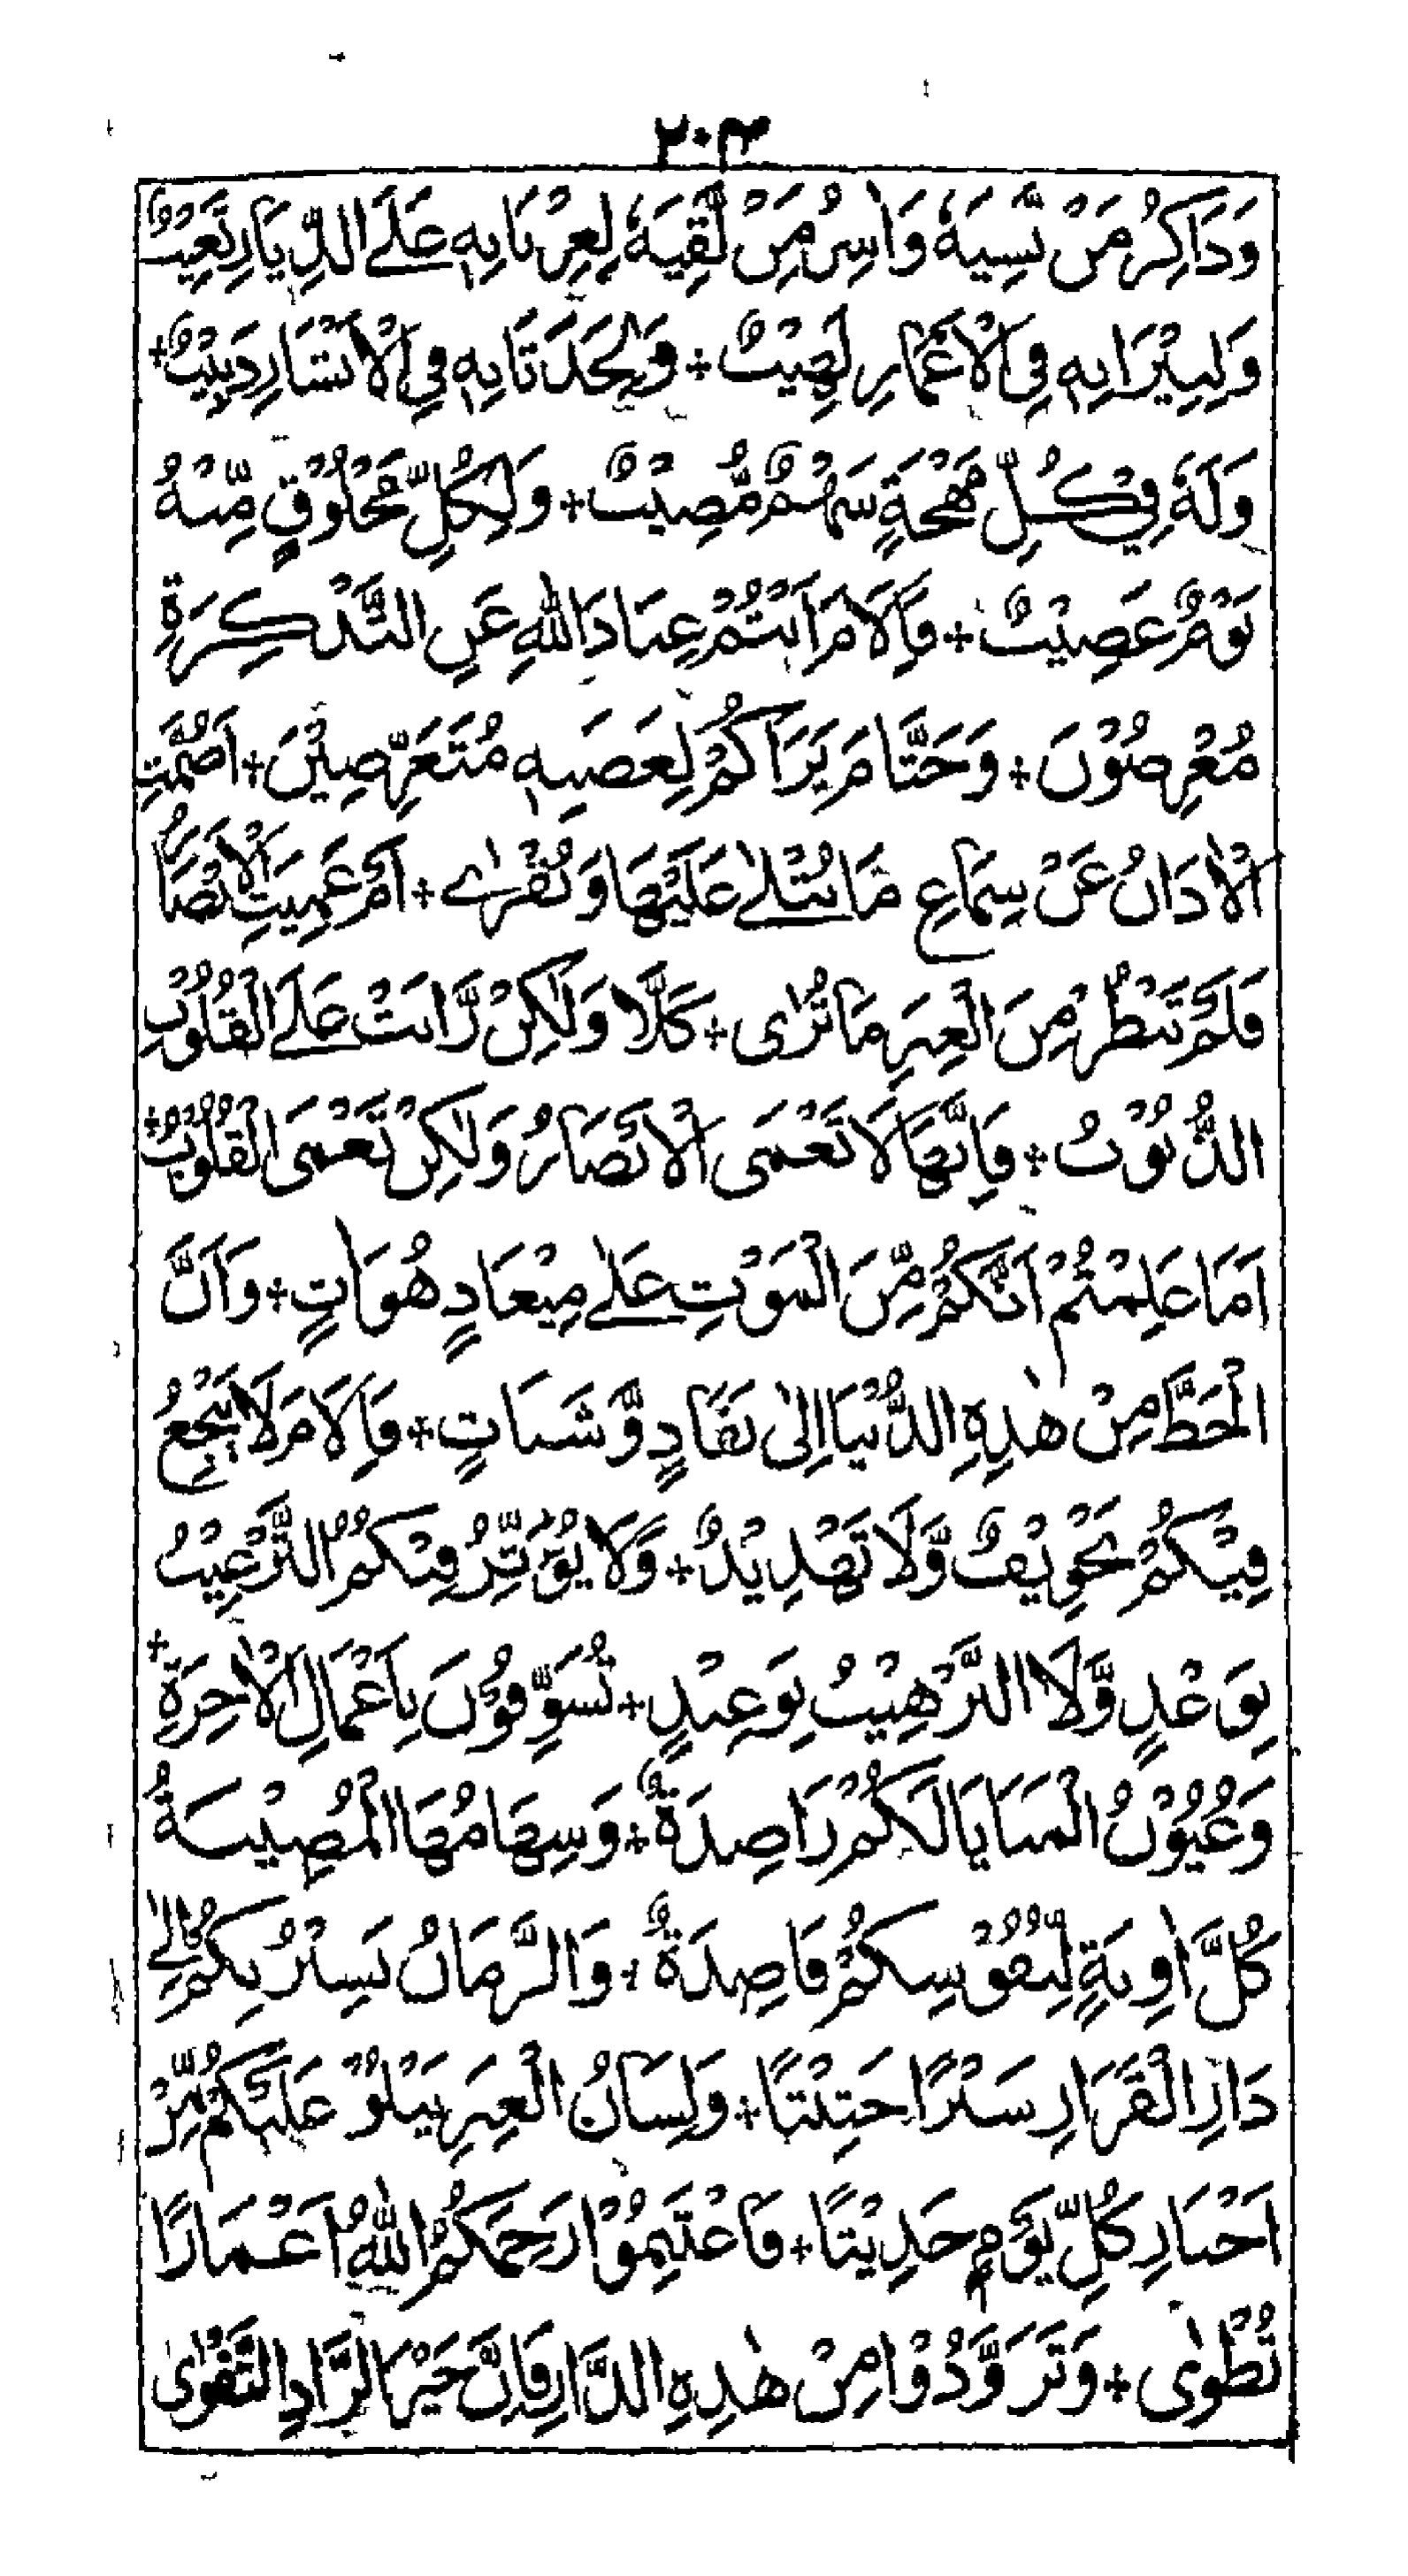 ٢٠٣
وَذَاكِرُ مَنْ نَّسِيَهٗ وَاٰسِرُ مَنْ لَّقِيَهٗ لِغِرْبَانِهٖ عَلَى الدِّيَارِ نَعِيْبٌ
وَلِنِيْرَانِهٖ فِي الْاَعْمَارِ لَهِيْبٌ + وَلِحَدَثَانِهٖ فِي الْاَبْشَارِ دَبِيْبٌ +
وَلَهٗ فِيْ كُلِّ مُهْجَةٍ سَهْمٌ مُّصِيْبٌ + وَلِكُلِّ مَخْلُوْقٍ مِّنْهُ
يَوْمٌ عَصِيْبٌ + فَاِلَامَ اَنْتُمْ عِبَادَ اللّٰهِ عَنِ التَّذْكِرَةِ
مُعْرِضُوْنَ + وَحَتَّامَ نَرَاكُمْ لِغَضَبِهٖ مُتَعَرِّضِيْنَ + اَصُمَّتِ
الْاٰذَانُ عَنْ سِمَاعِ مَا يُتْلٰى عَلَيْهَا وَيُقْرٰى + اَمْ عَمِيَتِ الْاَبْصَارُ
فَلَمْ تَنْظُرْ مِنَ الْعِبَرِ مَا تُرٰى + كَلَّا وَلٰكِنْ رَّانَتْ عَلَى الْقُلُوْبِ
الذُّنُوْبُ + فَاِنَّهَا لَا تَعْمَى الْاَبْصَارُ وَلٰكِنْ تَعْمَى الْقُلُوْبُ +
اَمَا عَلِمْتُمْ اَنَّكُمْ مِّنَ الْمَوْتِ عَلٰى مِيْعَادٍ هُوَاٰتٍ + وَاَنَّ
الْحَظَّ مِنْ هٰذِهِ الدُّنْيَا اِلٰى نَفَادٍ وَّشَتَاتٍ + فَاِلَامَ لَا يَنْجَعُ
فِيْكُمْ تَخْوِيْفٌ وَّلَا تَهْدِيْدٌ + وَلَا يُؤَثِّرُ فِيْكُمُ التَّرْغِيْبُ
بِوَعْدٍ وَّلَا التَّرْهِيْبُ بِوَعِيْدٍ + تُسَوِّفُوْنَ بِاَعْمَالِ الْاٰخِرَةِ +
وَعُيُوْنُ الْمَنَايَا لَكُمْ رَاصِدَةٌ + وَسِهَامُهَا الْمُصِيْبَةُ
كُلَّ اٰوِنَةٍ لِّنُفُوْسِكُمْ قَاصِدَةٌ + وَالزَّمَانُ يَسِيْرُ بِكُمْ اِلٰى
دَارِ الْقَرَارِ سَيْرًا حَثِيْثًا + وَلِسَانُ الْعِبَرِ يَتْلُوْ عَلَيْكُمْ مِّنْ
اَخْبَارِ كُلِّ يَوْمٍ حَدِيْثًا + فَاغْتَنِمُوْا رَحِمَكُمُ اللّٰهُ اَعْمَارًا
تُطْوٰى + وَتَزَوَّدُوْا مِنْ هٰذِهِ الدَّارِ فَاِنَّ خَيْرَ الزَّادِ التَّقْوٰى